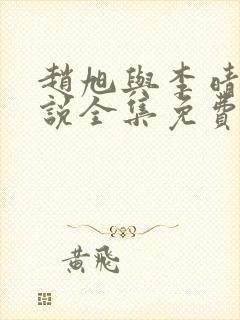 趙旭與李晴
說全集免費
黃飛